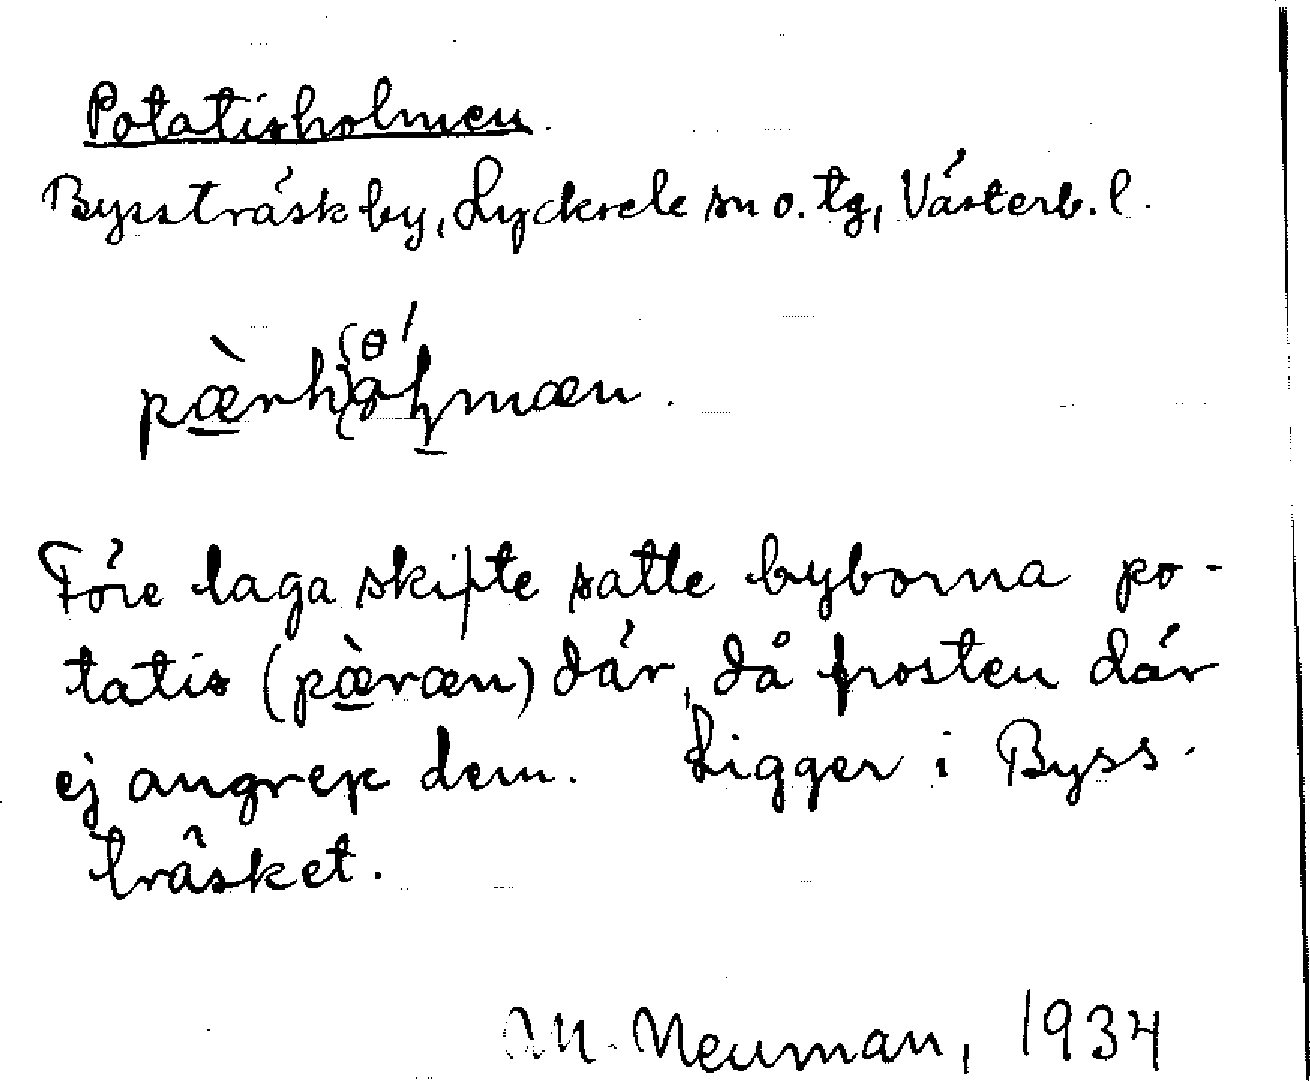 Potatisholmen.
Byssträsk by, Lycksele sn o. tg, Västerb. l.
pæ̀rh{θ/å}ḷ́mæn.
Före laga skifte satte byborna po-
tatis (pæ̀ræn) där, då frosten där
ej angrep dem. Ligger i Byss-
träsket.
M. Neuman, 1934